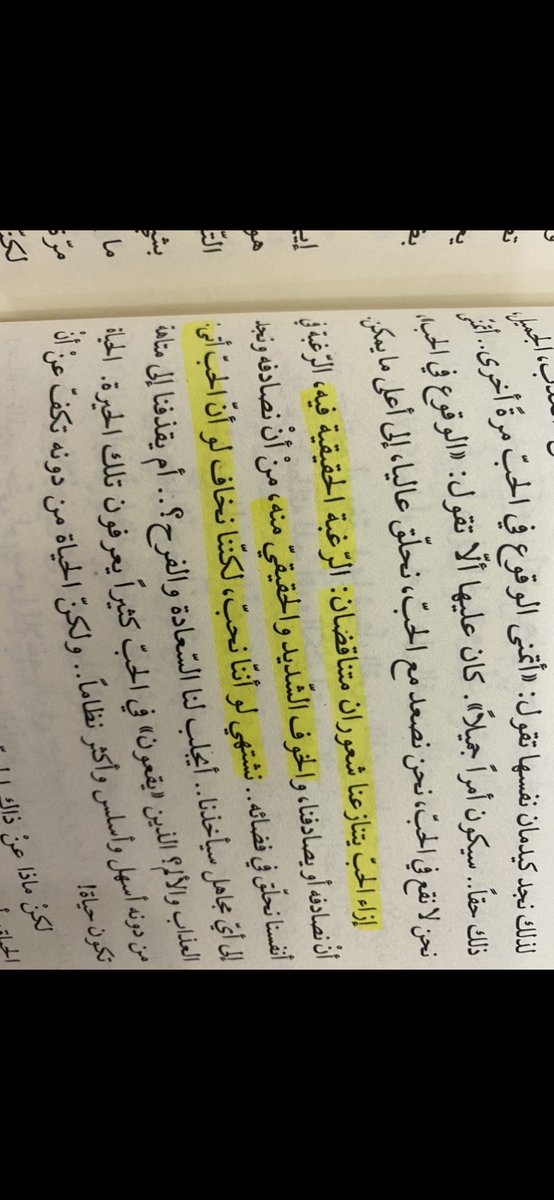 العذاب، الجميل،
لذلك نجد كيدمان نفسها تقول: «أتمنى الوقوع في الحبّ مرةً أخرى.. أتمنّى
ذلك حقاً.. سيكون أمراً جميلاً». كان عليها ألّا تقول: «الوقوع في الحب»،
نحن لا نقع في الحبّ، نحن نصعد مع الحبّ، نحلّق عاليا، إلى أعلى ما يمكن.
إزاء الحبّ يتنازعنا شعوران متناقضان: الرّغبة الحقيقية فيه، الرّغبة في
أنْ نصادفه أو يصادفنا، والخوف الشّديد والحقيقيّ منه، منْ أنْ نصادفه ونجد
أنفسنا نحلّق في فضائه.. نشتهي لو أنّنا نحبّ، لكنّنا نخاف لو أنّ الحبّ أتى.
إلى أيّ مجاهل سيأخذنا.. أيجلب لنا السّعادة والفرح؟.. أم يقذفنا إلى متاهة
العذاب والألم؟ الذين «يقعون» في الحبّ كثيراً يعرفون تلك الحيرة. الحياة
من دونه أسهل وأسلس وأكثر نظاماً.. ولكنّ الحياة من دونه تكفّ عنْ أنْ
تكون حياة!
لكنْ ماذا عنْ ذاك